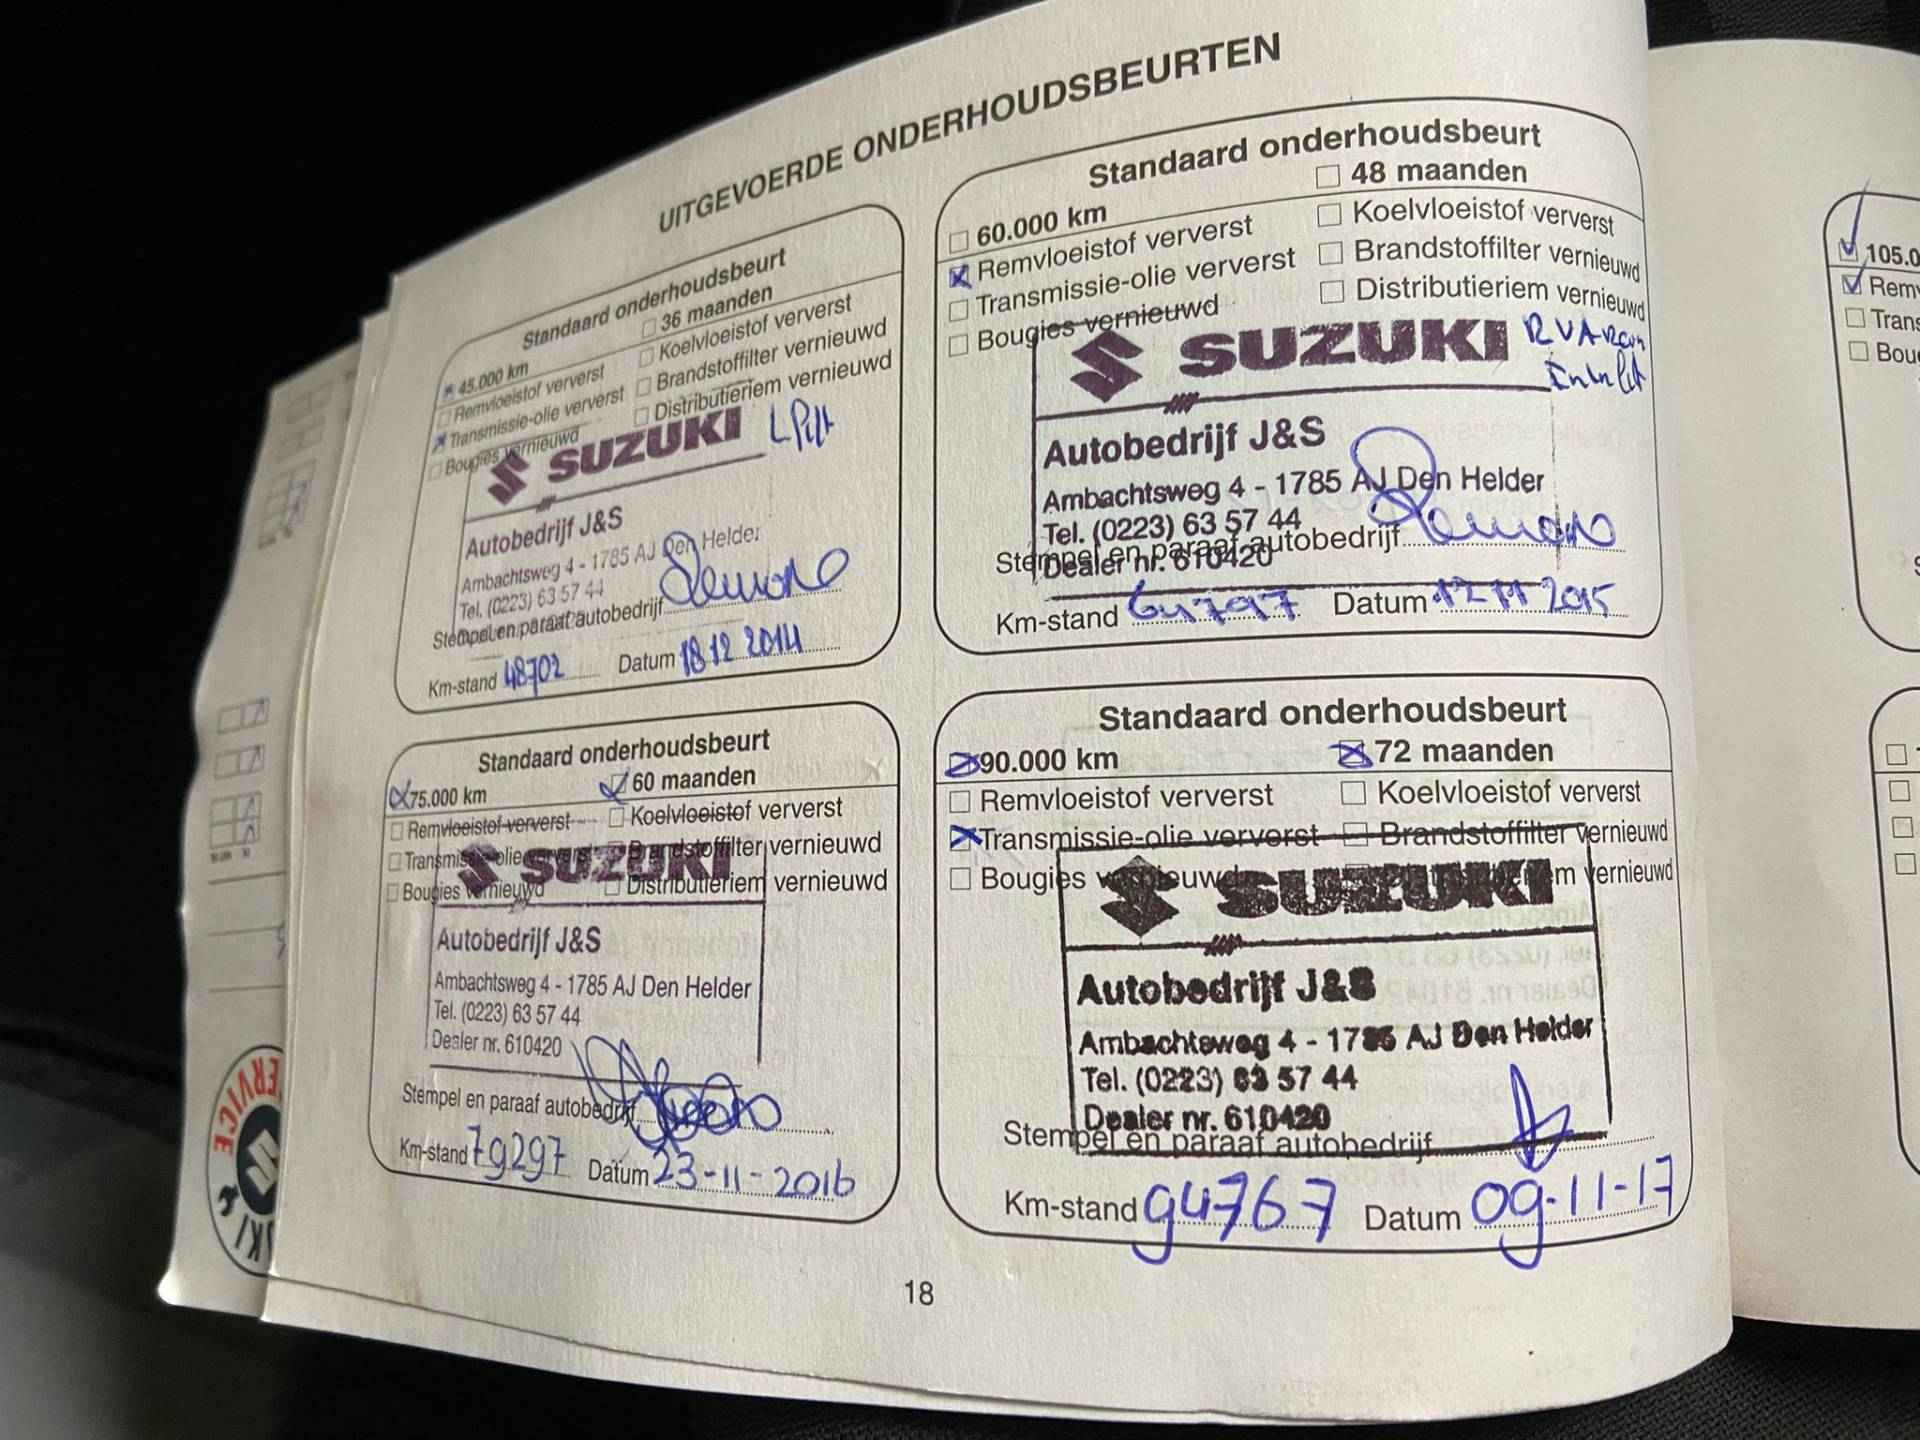 UITGEVOERDE ONDERHOUDSBEURTEN
Standaard onderhoudsbeurt
45.000 km
36 maanden
Remvloeistof ververst
Koelvloeistof ververst
Transmissie-olie ververst
Brandstoffilter vernieuwd
Bougies vernieuwd
Distributieriem vernieuwd
SUZUKI
Autobedrijf J&S
Ambachtsweg 4 - 1785 AJ Den Helder
Tel. (0223) 63 57 44
Stempel en paraaf autobedrijf
Km-stand 48702 Datum 18 12 2014
Standaard onderhoudsbeurt
60.000 km
48 maanden
Remvloeistof ververst
Koelvloeistof ververst
Transmissie-olie ververst
Brandstoffilter vernieuwd
Bougies vernieuwd
Distributieriem vernieuwd
SUZUKI
Autobedrijf J&S
Ambachtsweg 4 - 1785 AJ Den Helder
Tel. (0223) 63 57 44
Stempel en paraaf autobedrijf
Dealer nr. 610420
Km-stand 64797 Datum 12 11 2015
Standaard onderhoudsbeurt
75.000 km
60 maanden
Remvloeistof ververst
Koelvloeistof ververst
Transmissie-olie ververst
Brandstoffilter vernieuwd
Bougies vernieuwd
Distributieriem vernieuwd
SUZUKI
Autobedrijf J&S
Ambachtsweg 4 - 1785 AJ Den Helder
Tel. (0223) 63 57 44
Dealer nr. 610420
Stempel en paraaf autobedrijf
Km-stand 79297 Datum 23-11-2016
Standaard onderhoudsbeurt
90.000 km
72 maanden
Remvloeistof ververst
Koelvloeistof ververst
Transmissie-olie ververst
Brandstoffilter vernieuwd
Bougies vernieuwd
vernieuwd
SUZUKI
Autobedrijf J&S
Ambachtsweg 4 - 1785 AJ Den Helder
Tel. (0223) 63 57 44
Dealer nr. 610420
Stempel en paraaf autobedrijf
Km-stand 94767 Datum 09-11-17
18
105.0
Remv
Trans
Boug